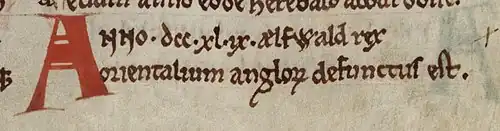 anno eode
ANNO · dcc · xl · ix · ælfwald rex
orientalium angloꝝ defunctus est .